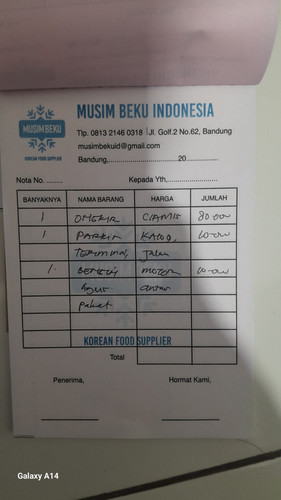 MUSIM BEKU INDONESIA
MUSIMBEKU
KOREAN FOOD SUPPLIER
Tlp. 0813 2146 0318 Jl. Golf.2 No.62, Bandung
musimbekuid@gmail.com
Bandung,........................... 20............
Nota No. ....... Kepada Yth,.......................
BANYAKNYA NAMA BARANG HARGA JUMLAH
1 ONGKIR CIAMIS 80.000
1 PARKIR 10.000
TERMINAL Jalan
1. BENSIN MOTOR 10.000
antar
paket
KOREAN FOOD SUPPLIER
Total
Penerima, Hormat Kami,
Galaxy A14